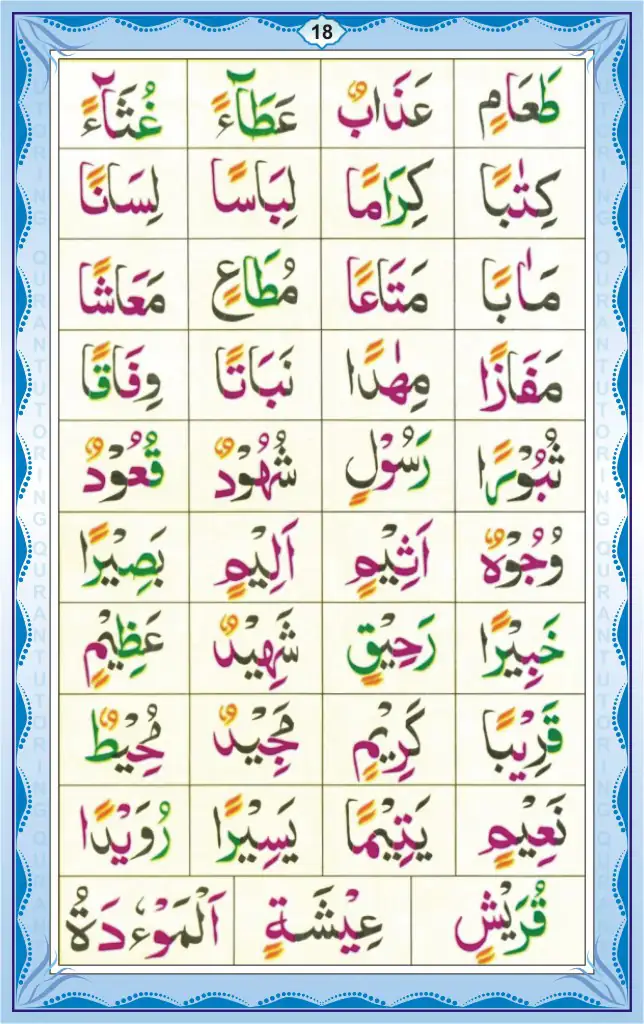 18
طَعَامٍ عَذَابٌ عَطَآءً غُثَآءً
كِتٰبًا كِرَامًا لِبَاسًا لِسَانًا
مَاٰبًا مَتَاعًا مُطَاعٍ مَعَاشًا
مَفَازًا مِهٰدًا نَبَاتًا وِفَاقًا
ثُبُوْرًا رَسُوْلٍ شُهُوْدٌ قُعُوْدٌ
وُجُوْهٌ اَثِيْمٍ اَلِيْمٍ بَصِيْرًا
خَبِيْرًا رَحِيْقٍ شَهِيْدٌ عَظِيْمٍ
قَرِيْبًا كَرِيْمٍ مَجِيْدٌ مُحِيْطٌ
نَعِيْمٍ يَتِيْمًا يَسِيْرًا رُوَيْدًا
قُرَيْشٍ عِيْشَةٍ اَلْمَوْءٗدَةُ
QURAN TUTORING QURAN TUTORING
QURAN TUTORING QURAN TUTORING